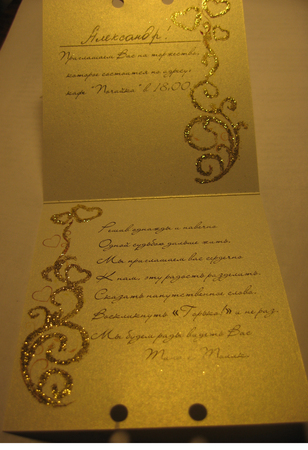 Александр!
Приглашаем Вас на торжество,
которое состоится по адресу:
кафе в 16:00
Решив однажды и навечно
Одной судьбой двоим жить,
Мы приглашаем вас сердечно
К нам, эту радость разделить.
Сказать напутственно слово
Воскликнуть «Горько!» и не раз.
Мы будем рады видеть Вас